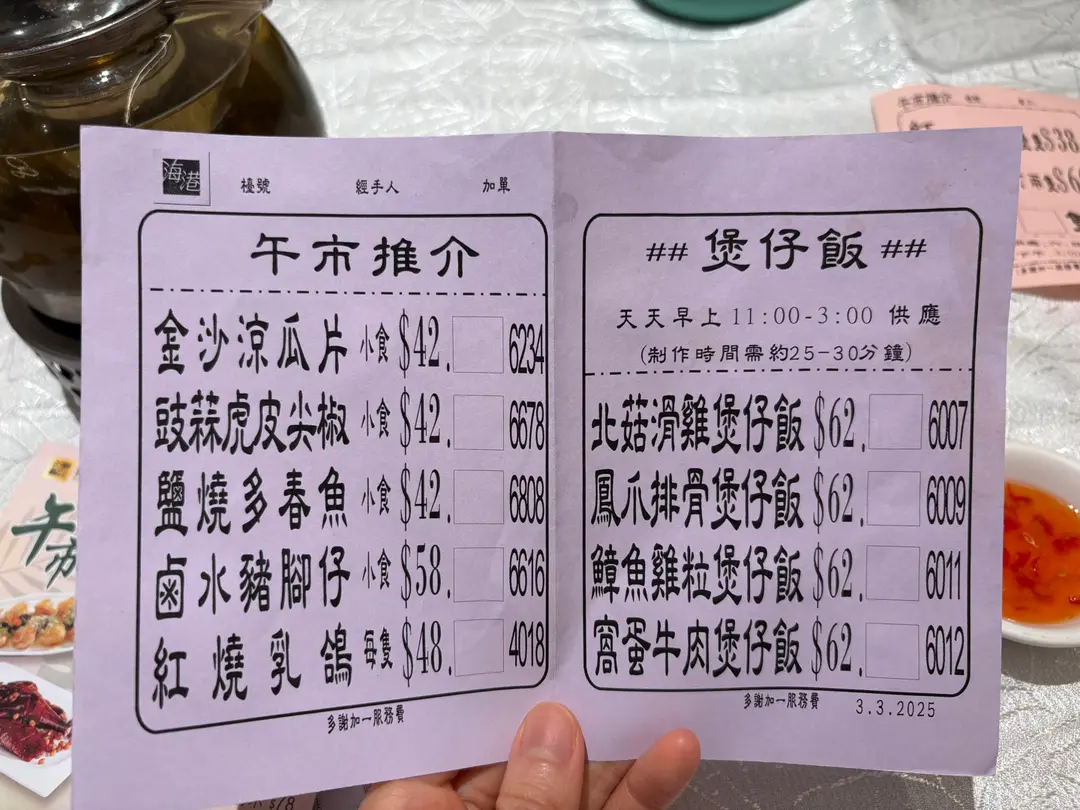 海港
檯號 經手人 加單
午市推介
金沙涼瓜片 小食 $42. 6234
豉蒜虎皮尖椒 小食 $42. 6678
鹽燒多春魚 小食 $42. 6808
鹵水豬腳仔 小食 $58. 6616
紅燒乳鴿 每隻 $48. 4018
多謝加一服務費
## 煲仔飯 ##
天天早上 11:00-3:00 供應
(制作時間需約25-30分鐘)
北菇滑雞煲仔飯 $62. 6007
鳳爪排骨煲仔飯 $62. 6009
鱆魚雞粒煲仔飯 $62. 6011
窩蛋牛肉煲仔飯 $62. 6012
多謝加一服務費 3.3.2025
午市推介
$38
午市
$78